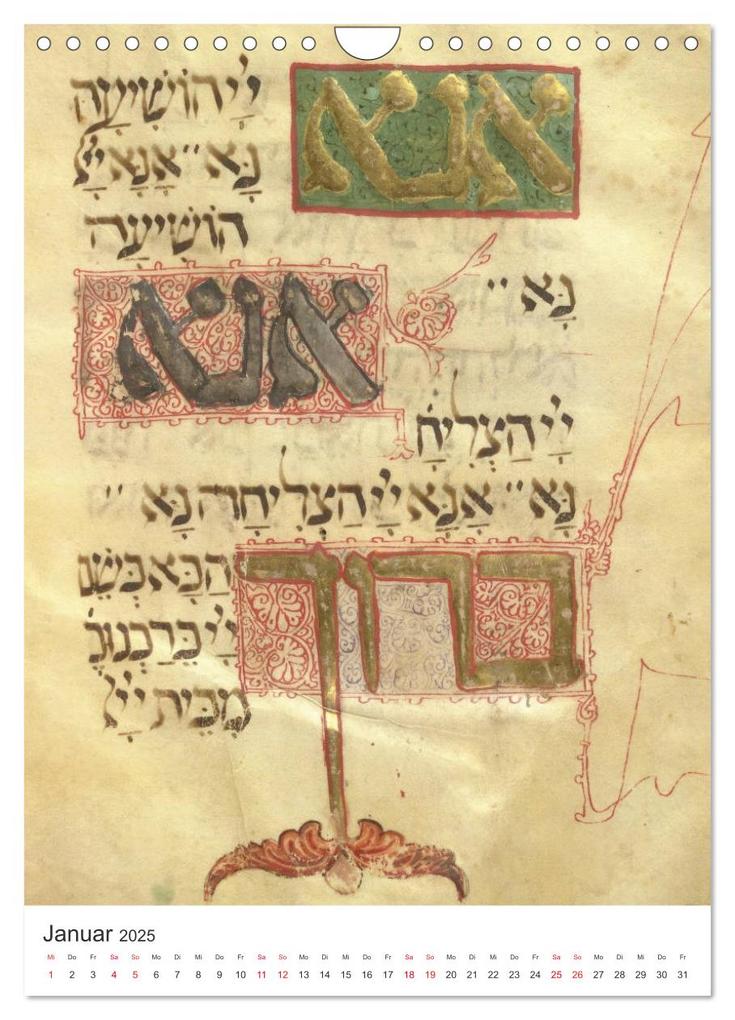 אנא
יְיָ הוֹשִׁיעָה
נָּא״ אָנָּא יְיָ
הוֹשִׁיעָה
נָּא״
אנא
יְיָ הַצְלִיחָ
נָּא״ אָנָּא יְיָ הַצְלִיחָה נָּא״
ברוך
הַבָּא בְּשֵׁם
יְיָ בֵּרַכְנוּכֶ
מִבֵּית יְיָ
Januar 2025
Mi Do Fr Sa So Mo Di Mi Do Fr Sa So Mo Di Mi Do Fr Sa So Mo Di Mi Do Fr Sa So Mo Di Mi Do Fr
1 2 3 4 5 6 7 8 9 10 11 12 13 14 15 16 17 18 19 20 21 22 23 24 25 26 27 28 29 30 31